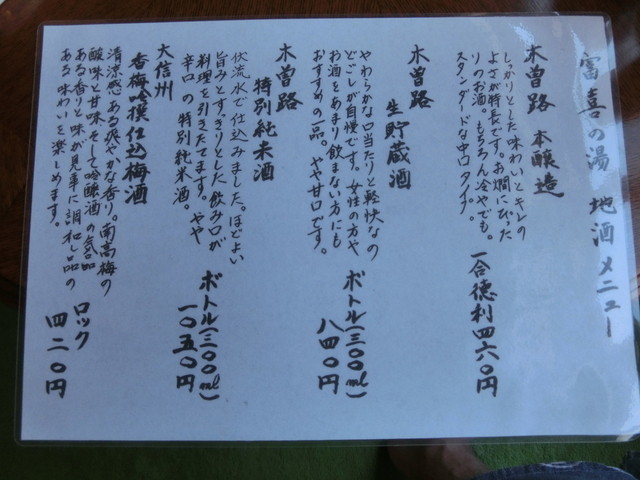 富喜の湯 地酒メニュー
木曽路 本醸造
しっかりとした味わいとキレの
よさが特長です。お燗にぴった
りのお酒。もちろん冷やでも。
スタンダードな中口タイプ。
一合徳利四六〇円
木曽路 生貯蔵酒
やわらかな口当たりと軽快なの
どごしが自慢です。女性の方や
お酒をあまり飲まない方にも
おすすめの品。やや甘口です。
ボトル(三〇〇ml)
八四〇円
木曽路 特別純米酒
伏流水で仕込みました。ほどよい
旨みとすっきりとした飲み口が
料理を引きたてます。やや
辛口の特別純米酒。
ボトル(三〇〇ml)
一〇五〇円
大信州
香梅吟撰仕込梅酒
清涼感ある爽やかな香り。南高梅の
酸味と甘味そして吟醸酒の気品
ある香りと味が見事に調和し品の
ある味わいを楽しめます。
ロック
四二〇円